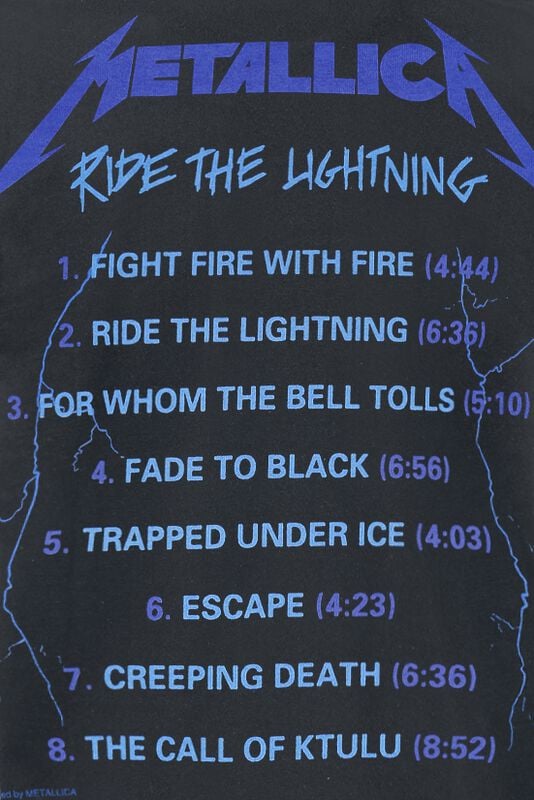 METALLICA
RIDE THE LIGHTNING
1. FIGHT FIRE WITH FIRE (4:44)
2. RIDE THE LIGHTNING (6:36)
3. FOR WHOM THE BELL TOLLS (5:10)
4. FADE TO BLACK (6:56)
5. TRAPPED UNDER ICE (4:03)
6. ESCAPE (4:23)
7. CREEPING DEATH (6:36)
8. THE CALL OF KTULU (8:52)
ed by METALLICA